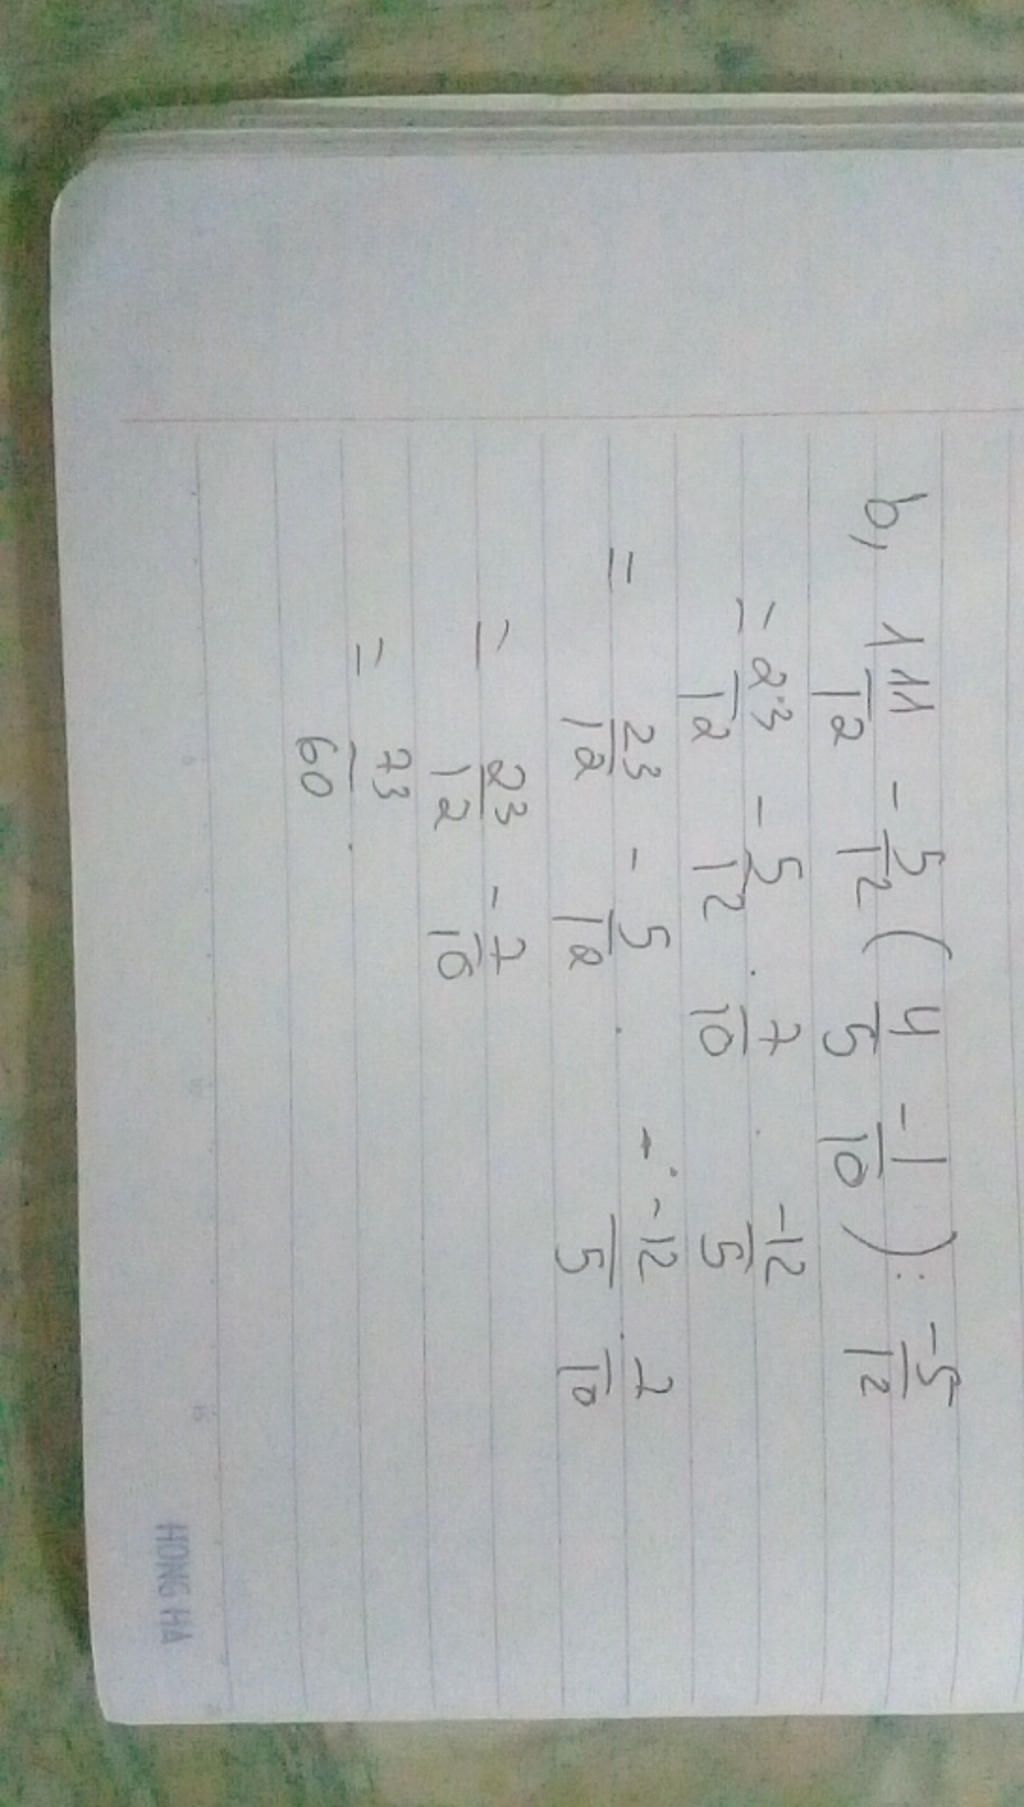 b, 1 11/12 - 5/12 ( 4/5 - 1/10 ) : -5/12
= 23/12 - 5/12 . 7/10 . -12/5
= 23/12 - 5/12 . -12/5 . 7/10
= 23/12 - 7/10
= 73/60
HONG HA